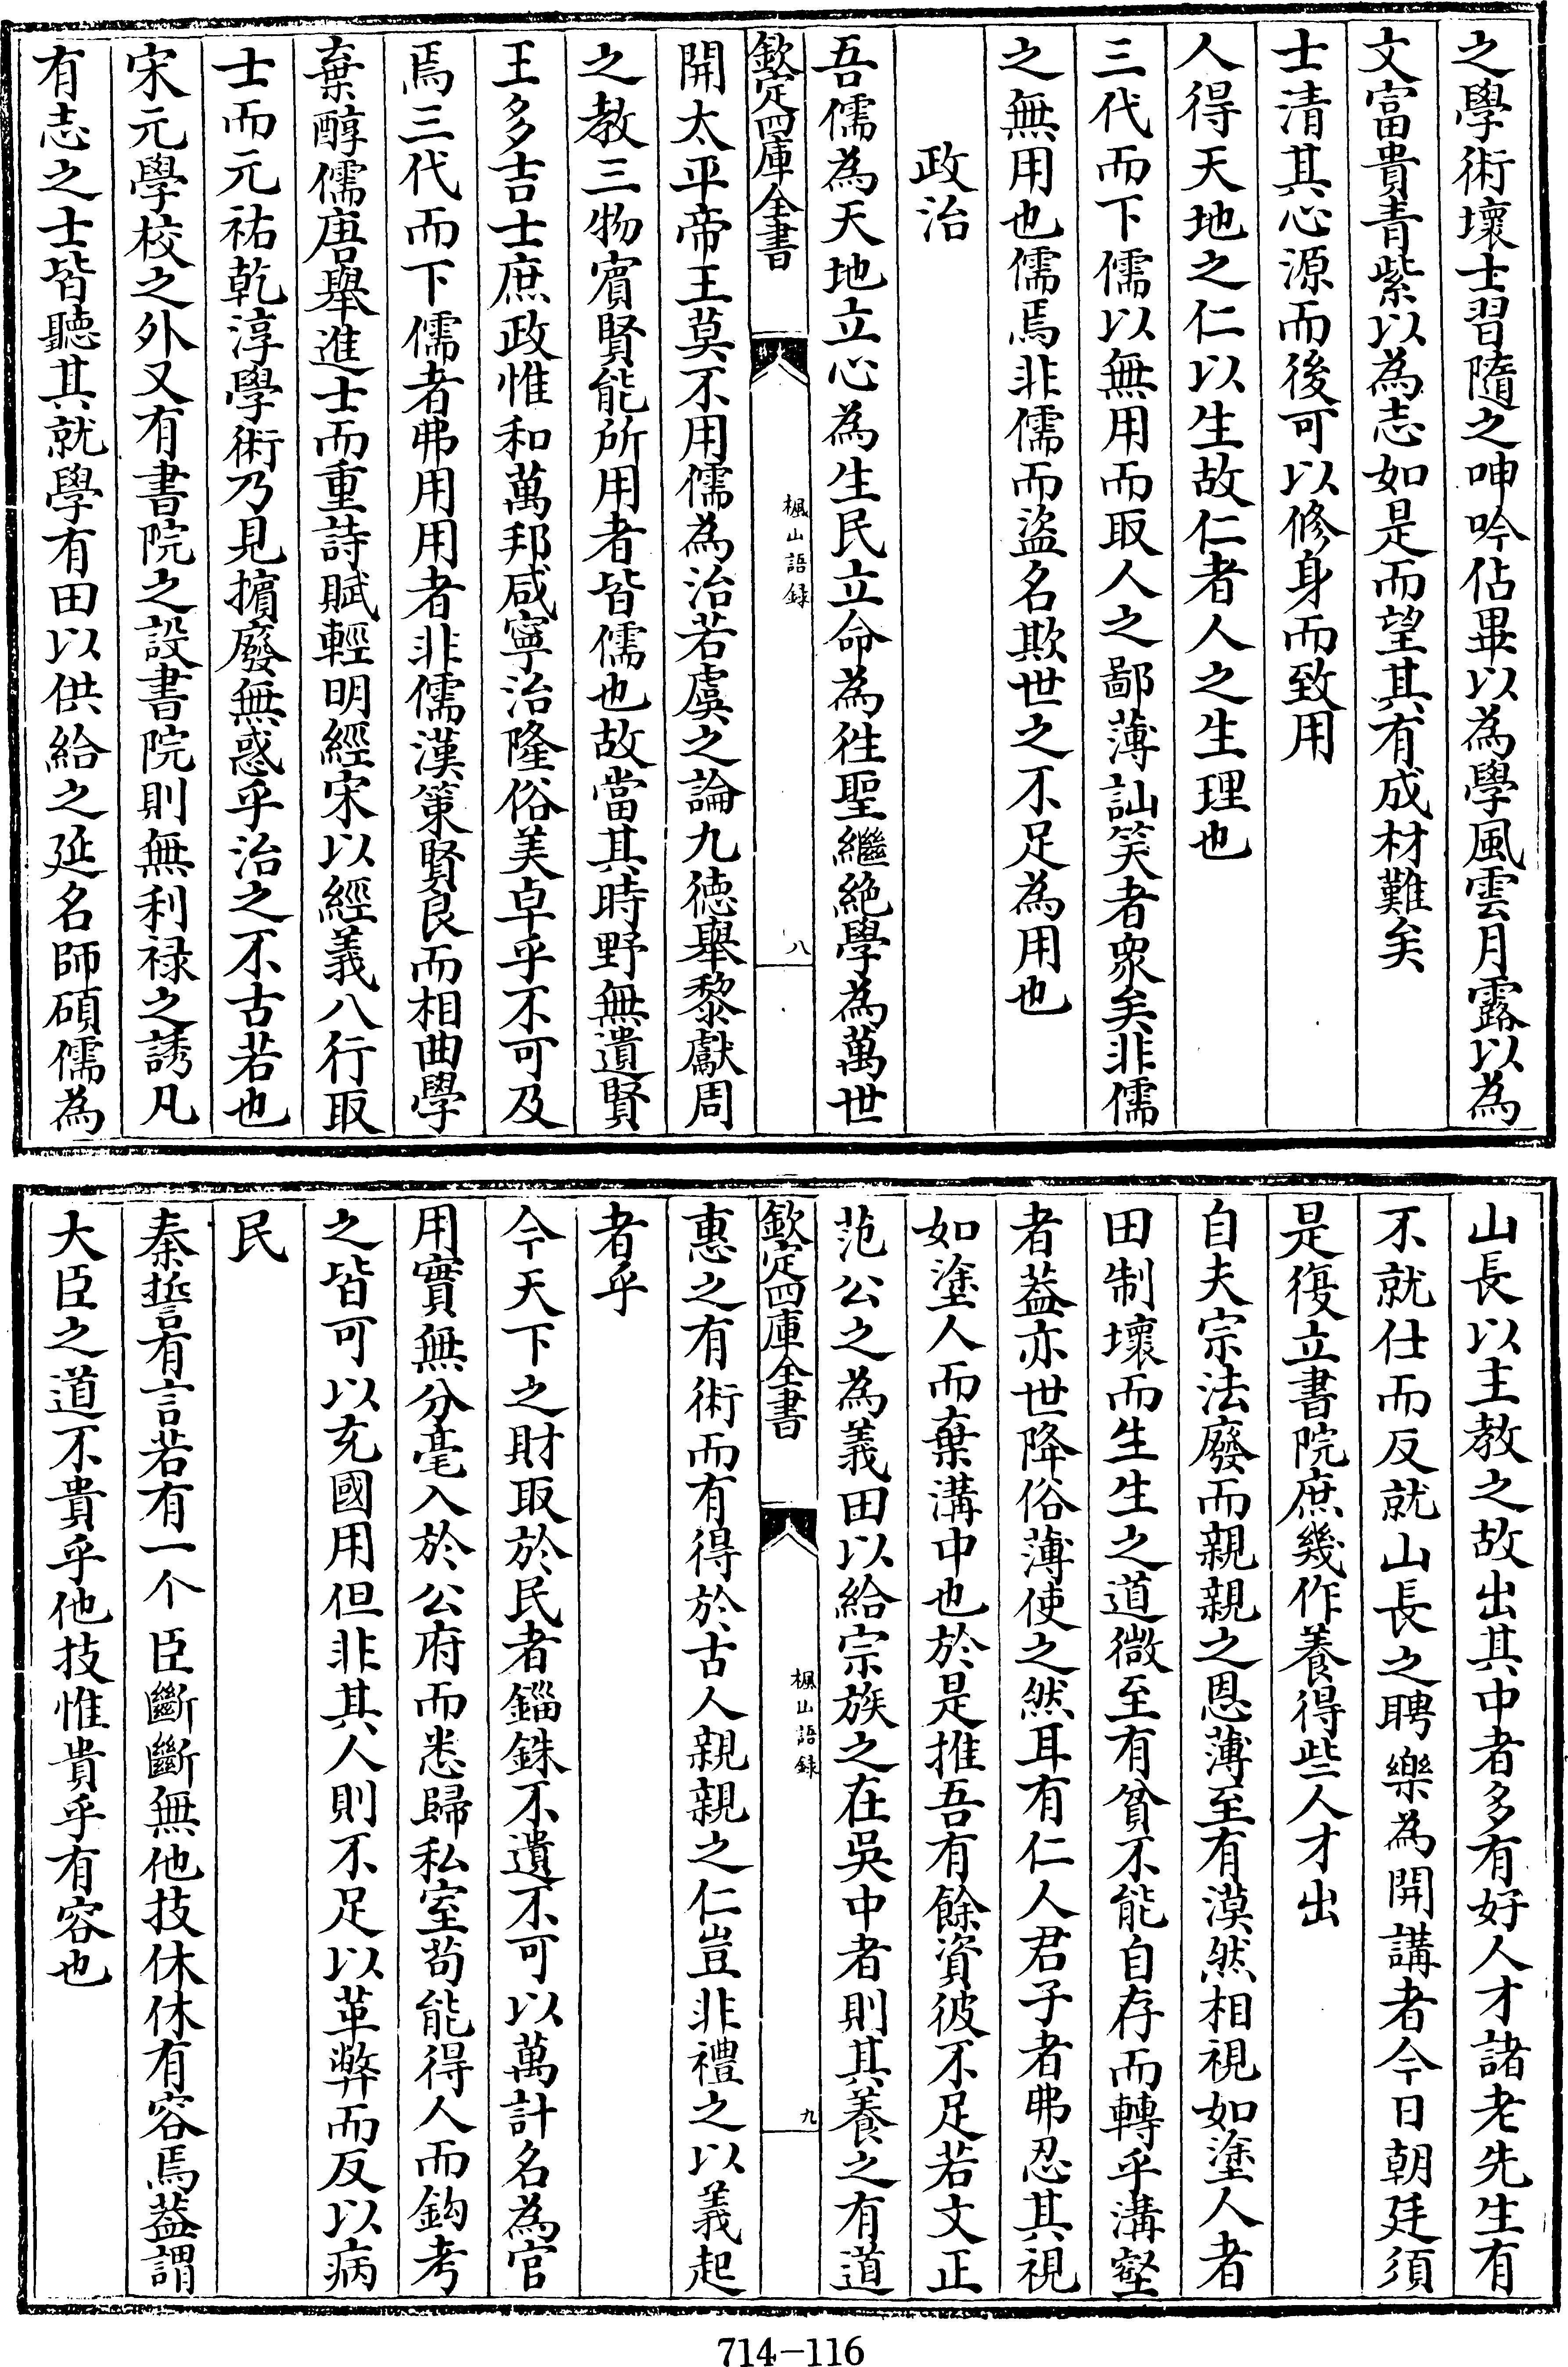 之學術壞士習隨之呻吟佔畢以為學風雲月露以為
文富貴青紫以為志如是而望其有成材難矣
士清其心源而後可以修身而致用
人得天地之仁以生故仁者人之生理也
三代而下儒以無用而取人之鄙薄訕笑者衆矣非儒
之無用也儒焉非儒而盜名欺世之不足為用也
政治
吾儒為天地立心為生民立命為徃聖繼絶學為萬世
欽定四庫全書
楓山語録
八
開太平帝王莫不用儒為治若虞之論九徳舉黎獻周
之教三物賓賢能所用者皆儒也故當其時野無遺賢
王多吉士庶政惟和萬邦咸寧治隆俗美卓乎不可及
焉三代而下儒者弗用用者非儒漢策賢良而相曲學
棄醇儒唐舉進士而重詩賦輕明經宋以經義八行取
士而元祐乾淳學術乃見擯廢無惑乎治之不古若也
宋元學校之外又有書院之設書院則無利禄之誘凡
有志之士皆聽其就學有田以供給之延名師碩儒為
山長以主教之故出其中者多有好人才諸老先生有
不就仕而反就山長之聘樂為開講者今日朝廷須
是復立書院庶幾作養得些人才出
自夫宗法廢而親親之恩薄至有漠然相視如塗人者
田制壞而生生之道微至有貧不能自存而轉乎溝壑
者蓋亦世降俗薄使之然耳有仁人君子者弗忍其視
如塗人而棄溝中也於是推吾有餘資彼不足若文正
范公之為義田以給宗族之在吳中者則其養之有道
欽定四庫全書
楓山語録
九
惠之有術而有得於古人親親之仁豈非禮之以義起
者乎
今天下之財取於民者錙銖不遺不可以萬計名為官
用實無分毫入於公府而悉歸私室苟能得人而鈎考
之皆可以充國用但非其人則不足以革弊而反以病
民
秦誓有言若有一个臣斷斷無他技休休有容焉蓋謂
大臣之道不貴乎他技惟貴乎有容也
714-116